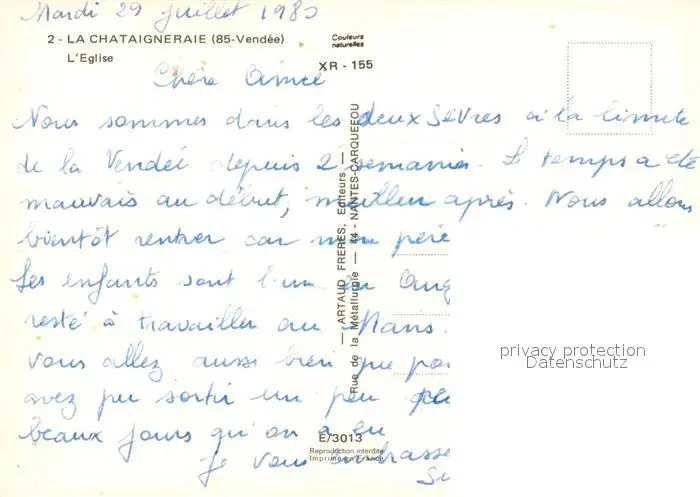 Mardi 29 juillet 1980
2 - LA CHATAIGNERAIE (85-Vendée)
L'Eglise
Couleurs
naturelles
XR - 155
Chère Aimée
Nous sommes dans les deux Sèvres à la limite
de la Vendée depuis 2 semaines. Le temps a été
mauvais au début, meilleur après. Nous allons
bientôt rentrer car mon père
Les enfants sont l'un en Ang
resté à travailler au Mans.
Vous allez aussi bien que
avez pu sortir un peu
beaux jours qu'on a eu
Je vous embrasse
— ARTAUD FRERES, Editeurs —
Rue de la Métallurgie — 44 - NANTES-CARQUEFOU
E/3013
Reproduction interdite
Imprimé en France
privacy protection
Datenschutz